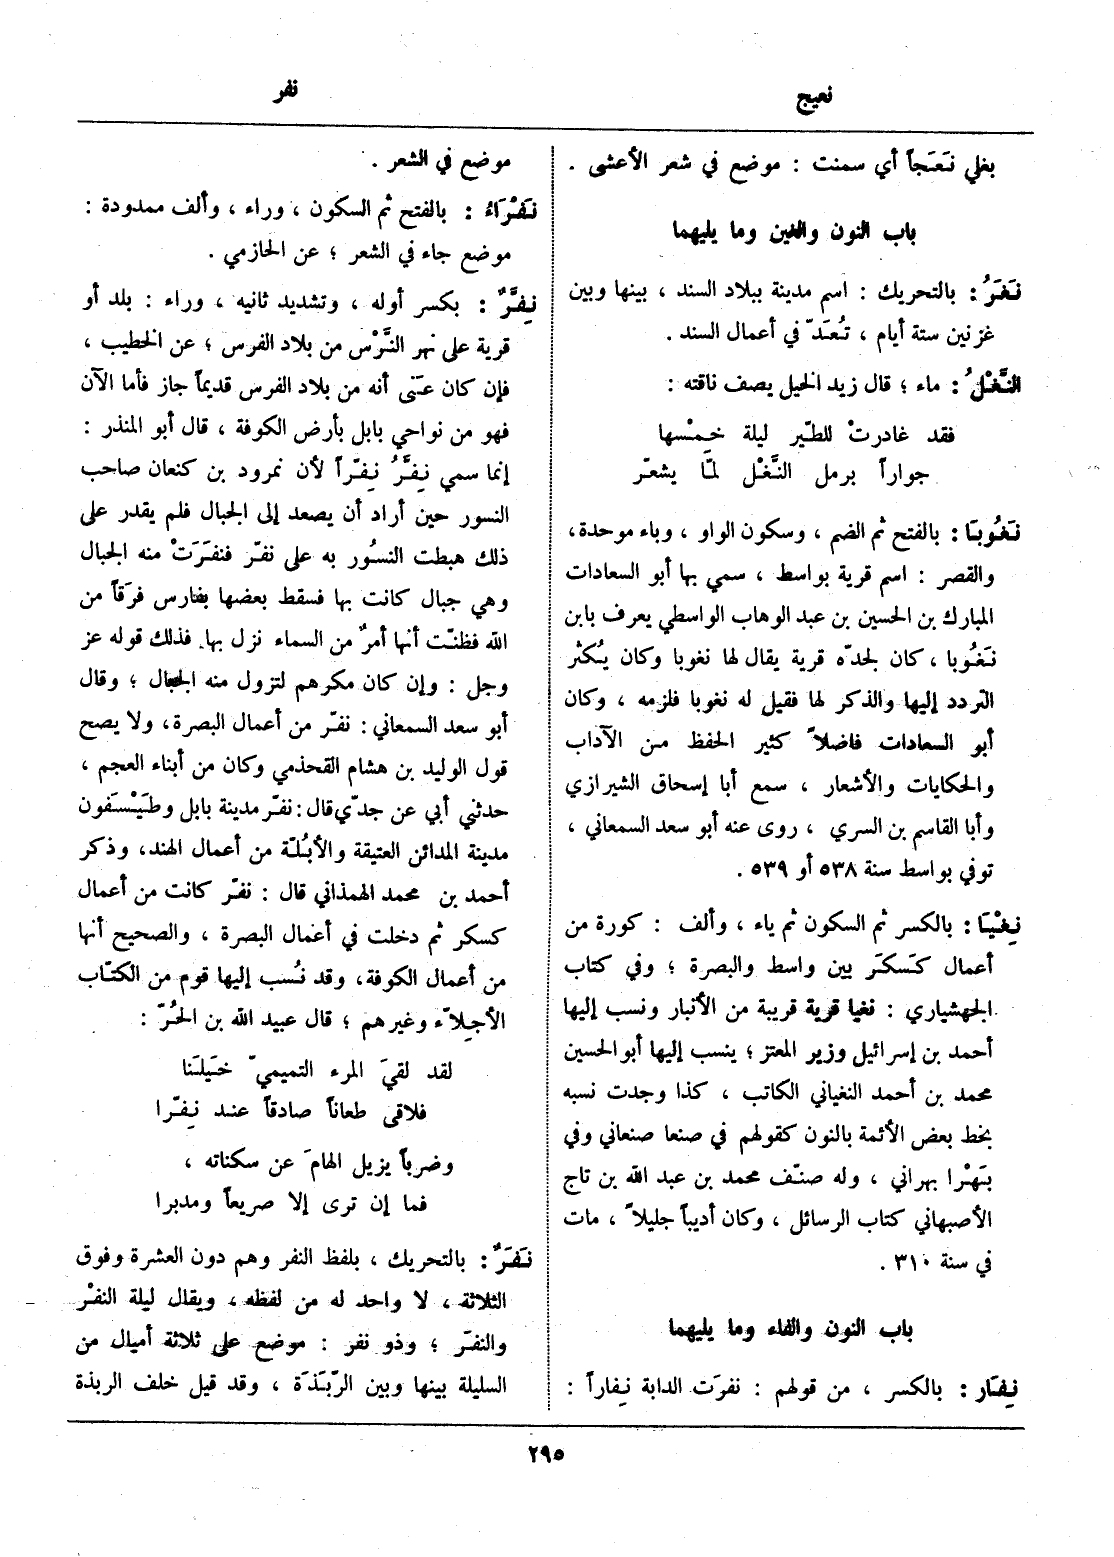 نعيج
نفر
بغلي نَعَجاً أي سمنت : موضع في شعر الأعشى .
باب النون والغين وما يليهما
نَغَرُ : بالتحريك : اسم مدينة ببلاد السند ، بينها وبين
غزنين ستة أيام ، تُعَدّ في أعمال السند .
النَّغْلُ : ماء ؛ قال زيد الخيل يصف ناقته :
فقد غادرتْ للطَّير ليلة خِمْسها
جواراً برمل النَّغْل لمّا يشعّر
نَغُوبَا : بالفتح ثم الضم ، وسكون الواو ، وباء موحدة،
والقصر : اسم قرية بواسط ، سمي بها أبو السعادات
المبارك بن الحسين بن عبد الوهاب الواسطي يعرف بابن
نَغُوبا ، كان لجدّه قرية يقال لها نغوبا وكان يُكثر
التردد إليها والذكر لها فقيل له نغوبا فلزمه ، وكان
أبو السعادات فاضلاً كثير الحفظ من الآداب
والحكايات والأشعار ، سمع أبا إسحاق الشيرازي
وأبا القاسم بن السري ، روى عنه أبو سعد السمعاني ،
توفي بواسط سنة ٥٣٨ أو ٥٣٩ .
نِغْيَا : بالكسر ثم السكون ثم ياء ، وألف : كورة من
أعمال كَسكَر بين واسط والبصرة ؛ وفي كتاب
الجهشياري : نغيا قرية قريبة من الأنبار ونسب إليها
أحمد بن إسرائيل وزير المعتز ؛ ينسب إليها أبو الحسين
محمد بن أحمد النغياني الكاتب ، كذا وجدت نسبه
بخط بعض الأئمة بالنون كقولهم في صنعا صنعاني وفي
بَهْرا بهراني ، وله صنّف محمد بن عبد الله بن تاج
الأصبهاني كتاب الرسائل ، وكان أديباً جليلاً ، مات
في سنة ٣١٠ .
باب النون والفاء وما يليهما
نِفَار : بالكسر ، من قولهم : نفرَت الدابة نِفاراً :
موضع في الشعر .
نَفْرَاءُ : بالفتح ثم السكون ، وراء ، وألف ممدودة :
موضع جاء في الشعر ؛ عن الحازمي .
نِفَّرٌ : بكسر أوله ، وتشديد ثانيه ، وراء : بلد أو
قرية على نهر النَّرْس من بلاد الفرس ؛ عن الخطيب ،
فإن كان عنى أنه من بلاد الفرس قديماً جاز فأما الآن
فهو من نواحي بابل بأرض الكوفة ، قال أبو المنذر :
إنما سمي نِفَّرُ نِفّراً لأن نمرود بن كنعان صاحب
النسور حين أراد أن يصعد إلى الجبال فلم يقدر على
ذلك هبطت النسُور به على نفّر فنفَرَتْ منه الجبال
وهي جبال كانت بها فسقط بعضها بفارس فرَقاً من
الله فظنّت أنها أمرٌ من السماء نزل بها. فذلك قوله عز
وجل : وإن كان مكرهم لتزول منه الجبال ؛ وقال
أبو سعد السمعاني : نفّر من أعمال البصرة، ولا يصح
قول الوليد بن هشام القحذمي وكان من أبناء العجم ،
حدثني أبي عن جدّي قال : نفّر مدينة بابل وطَيْسَفون
مدينة المدائن العتيقة والأبُلّة من أعمال الهند، وذكر
أحمد بن محمد الهمذاني قال : نفّر كانت من أعمال
كسكر ثم دخلت في أعمال البصرة ، والصحيح أنها
من أعمال الكوفة، وقد نُسب إليها قوم من الكتّاب
الأجِلاّء وغيرهم ؛ قال عبيد الله بن الحُرّ :
لقد لقيَ المرء التميميّ خَيلَنا
فلاقى طعاناً صادقاً عند نِفّرا
وضرباً يزيل الهامَ عن سكناته ،
فما إن ترى إلا صريعاً ومدبرا
نَفَرٌ : بالتحريك ، بلفظ النفر وهم دون العشرة وفوق
الثلاثة ، لا واحد له من لفظه ، ويقال ليلة النفْر
والنفَر ؛ وذو نفر : موضع على ثلاثة أميال من
السليلة بينها وبين الرّبَذَة ، وقد قيل خلف الربذة
٢٩٥